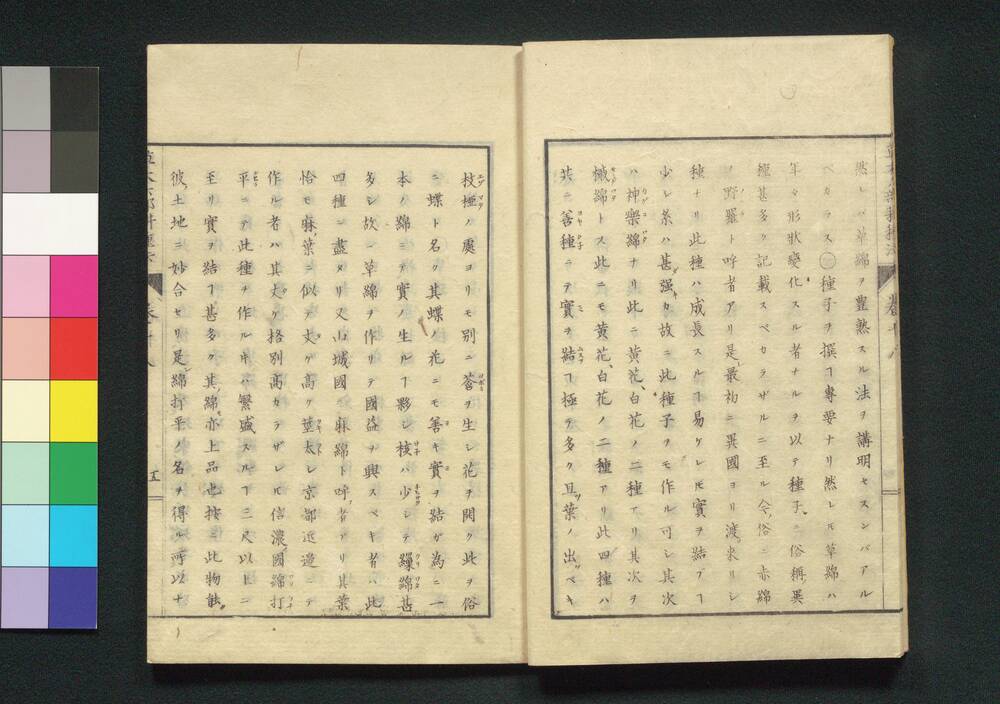 然レバ草綿ヲ豊熟スル法ヲ講明セズンバアル
ベカラス㊂種子ヲ撰ヿ専要ナリ然レㇳモ草綿ハ
年々形狀變化スル者ナルヲ以テ種子ニ俗稱異
種甚多ク記載スベカラザルニ至ル今俗ニ赤綿
ノ野羅ト呼者アリ是最初ニ異國ヨリ渡来リシ
種ナリ此種ハ成長スルヿ易ケレㇳモ實ヲ結ブヿ
少シ糸ハ甚強キ故ニ此種子ヲモ作ル可シ其次
ハ神樂綿ナリ此ニ黄花、白花ノ二種アリ其次ヲ
ㇳス此ニモ黄花、白花ノ二種アリ此四種ハ
共ニ善種ニテ實ヲ結ヿ極テ多ク且葉ノ出ベキ
枝椏ノ處ヨリモ別ニ莟ヲ生シ花ヲ開ク此ヲ俗
ニ蝶ト名ク其蝶ノ花ニモ善キ實ヲ結ガ為ニ一
本ノ綿ニテ實ノ生ルヿ夥シ核ハ少シテ繰綿甚
多シ故ニ草綿ヲ作リテ國益ヲ興スベキ者ハ此
四種ニ盡タリ又山城國ニ麻綿ト呼者アリ其葉
恰モ麻葉ニ似テ丈ゲ高ク莖太シ京都近邊ニテ
作ル者ハ其丈ケ格別高カラザレㇳモ信濃國綿打
平ニテ此種ヲ作ル中ハ繁盛スルヿ三尺以上ニ
至リ實ヲ結ヿ甚多ク其綿亦上品也按ニ此物能
彼土地ニ妙合セリ是綿打平ノ名ヲ得ル所以ナ
五